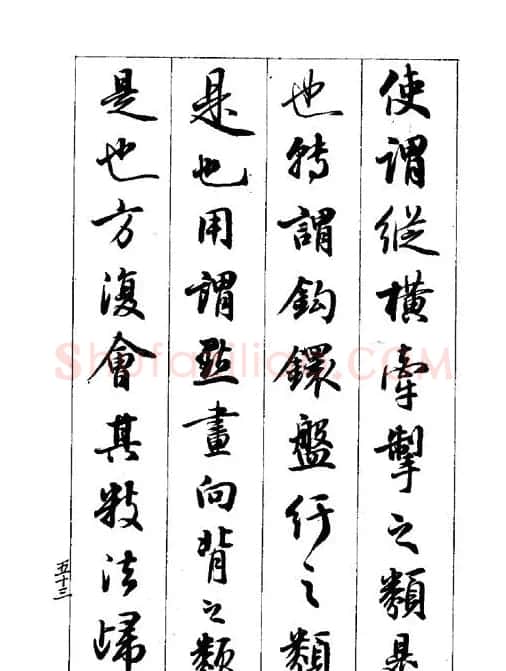 使謂縱橫牽掣之類是
也轉謂鈎鐶盤紆之類
是也用謂點畫向背之類
是也方復會其數法歸
五十三
ShufaZiliao.COM